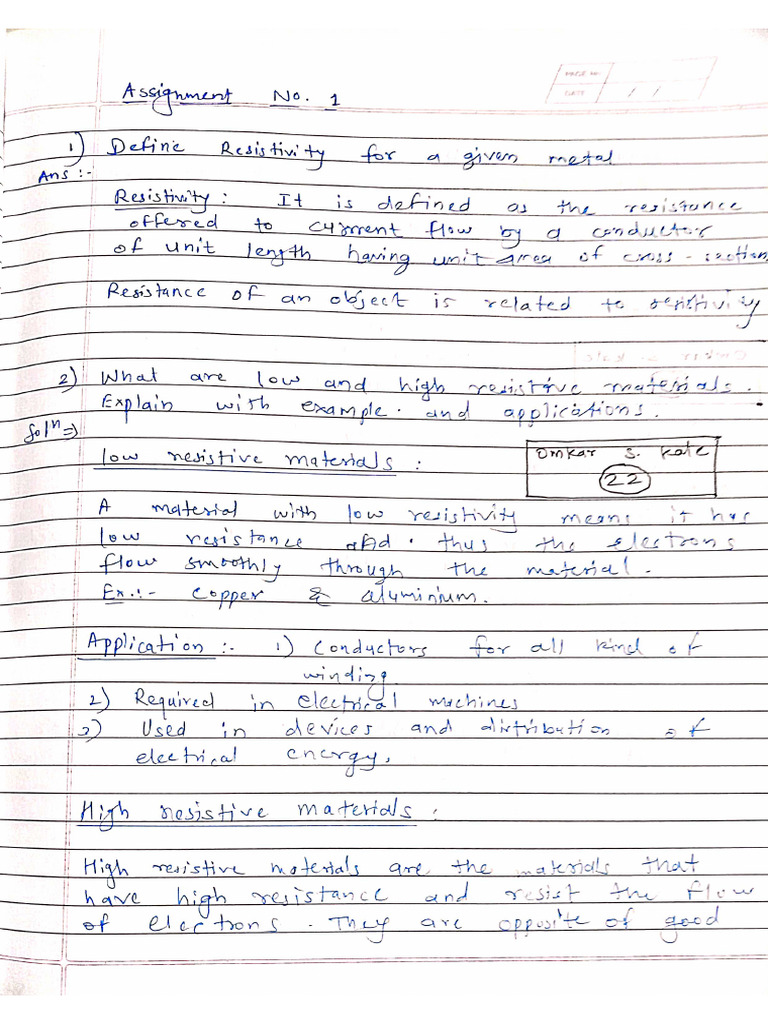 PAGE No.
DATE / /
Assignment No. 1
1) Define Resistivity for a given metal
Ans :-
Resistivity : It is defined as the resistance
offered to current flow by a conductor
of unit length having unit area of cross-section
Resistance of an object is related to
2) What are low and high resistive materials.
Explain with example. and applications.
Solⁿ⇒
low resistive materials :
Omkar S. Kate
22
A material with low resistivity means it has
low resistance thus the electrons
flow smoothly through the material.
Ex.:- Copper & aluminium.
Application :- 1) Conductors for all kind of
winding.
2) Required in electrical machines
3) Used in devices and distribution of
electrical energy.
High resistive materials :
High resistive materials are the materials that
have high resistance and resist the flow
of electrons. They are opposite of good